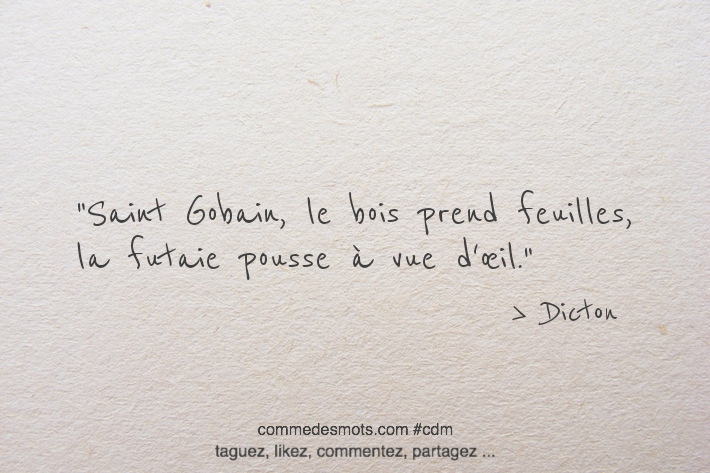 "Saint Gobain, le bois prend feuilles,
la futaie pousse à vue d'œil."
> Dicton
commedesmots.com #cdm
taguez, likez, commentez, partagez ...